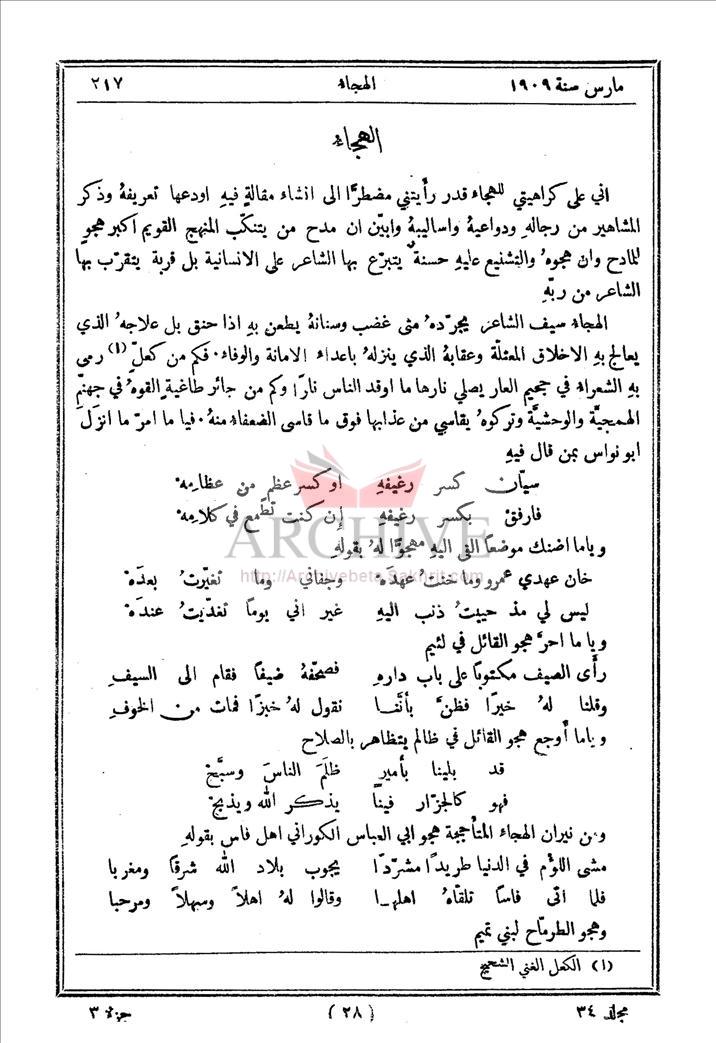 مارس سنة ١٩٠٩ الهجاء ٢١٧
الهجاء
اني على كراهيتي للهجاء قدر رأيتني مضطرًّا الى انشاء مقالةٍ فيهِ اودعها تعريفهُ وذكر
المشاهير من رجالهِ ودواعيهُ واساليبهُ وابيّن ان مدح من يتنكّب المنهج القويم اكبر هجوٍ
للمادح وان هجوهُ والتشنيع عليهِ حسنةٌ يتبرّع بها الشاعر على الانسانية بل قربة يتقرّب بها
الشاعر من ربّهِ
الهجاء سيف الشاعر يجرّدهُ متى غضب وسنانهُ يطعن بهِ اذا حنق بل علاجهُ الذي
يعالج بهِ الاخلاق المعتلّة وعقابهُ الذي ينزلهُ باعداء الامانة والوفاء. فكم من كعلٍّ (١) رمى
بهِ الشعراء في جحيم العار يصلي نارها ما اوقد الناس نارًا وكم من جائر طاغيةٍ القوهُ في جهنّم
الهمجيَّة والوحشيَّة وتركوهُ يقاسي من عذابها فوق ما قاسى الضعفاء منهُ. فيا ما امرّ ما انزل
ابو نواس بمن قال فيهِ
سيّان كسر رغيفهِ او كسر عظمٍ من عظامِهْ
فارفق بكسر رغيفهِ إن كنت تطمع في كلامِهْ
وياما اضنك موضعًا القى اليهِ مهجوًّا لهُ بقولهِ
خان عهدي عمرو وما خنتُ عهدَهْ وجفاني وما تغيّرتُ بعدَهْ
ليس لي مذ حييتُ ذنب اليهِ غير اني يومًا تغدّيتُ عندَهْ
ويا ما احرَّ هجو القائل في لئيم
رأى الصيف مكتوبًا على باب دارهِ فصحّفهُ ضيفًا فقام الى السيفِ
وقلنا لهُ خيرًا فظنَّ بأنَّنا نقول لهُ خبزًا فمات من الخوفِ
وياما أوجع هجو القائل في ظالم يتظاهر بالصلاح
قد بلينا بأميرٍ ظلَمَ الناسَ وسبَّحْ
فهو كالجزّار فينا يذكر الله ويذبحْ
ومن نيران الهجاء المتأججة هجو ابي العباس الكوراني اهل فاس بقولهِ
مشى اللؤم في الدنيا طريدًا مشرّدًا يجوب بلاد الله شرقًا ومغربا
فلما اتى فاسًا تلقّاهُ اهلها وقالوا لهُ اهلاً وسهلاً ومرحبا
وهجو الطرمّاح لبني تميم
(١) الكعل الغني الشحيح
مجلد ٣٤ (٢٨) جزء ٣
ARCHIVE
http://Archivebeta.Sakhrit.com